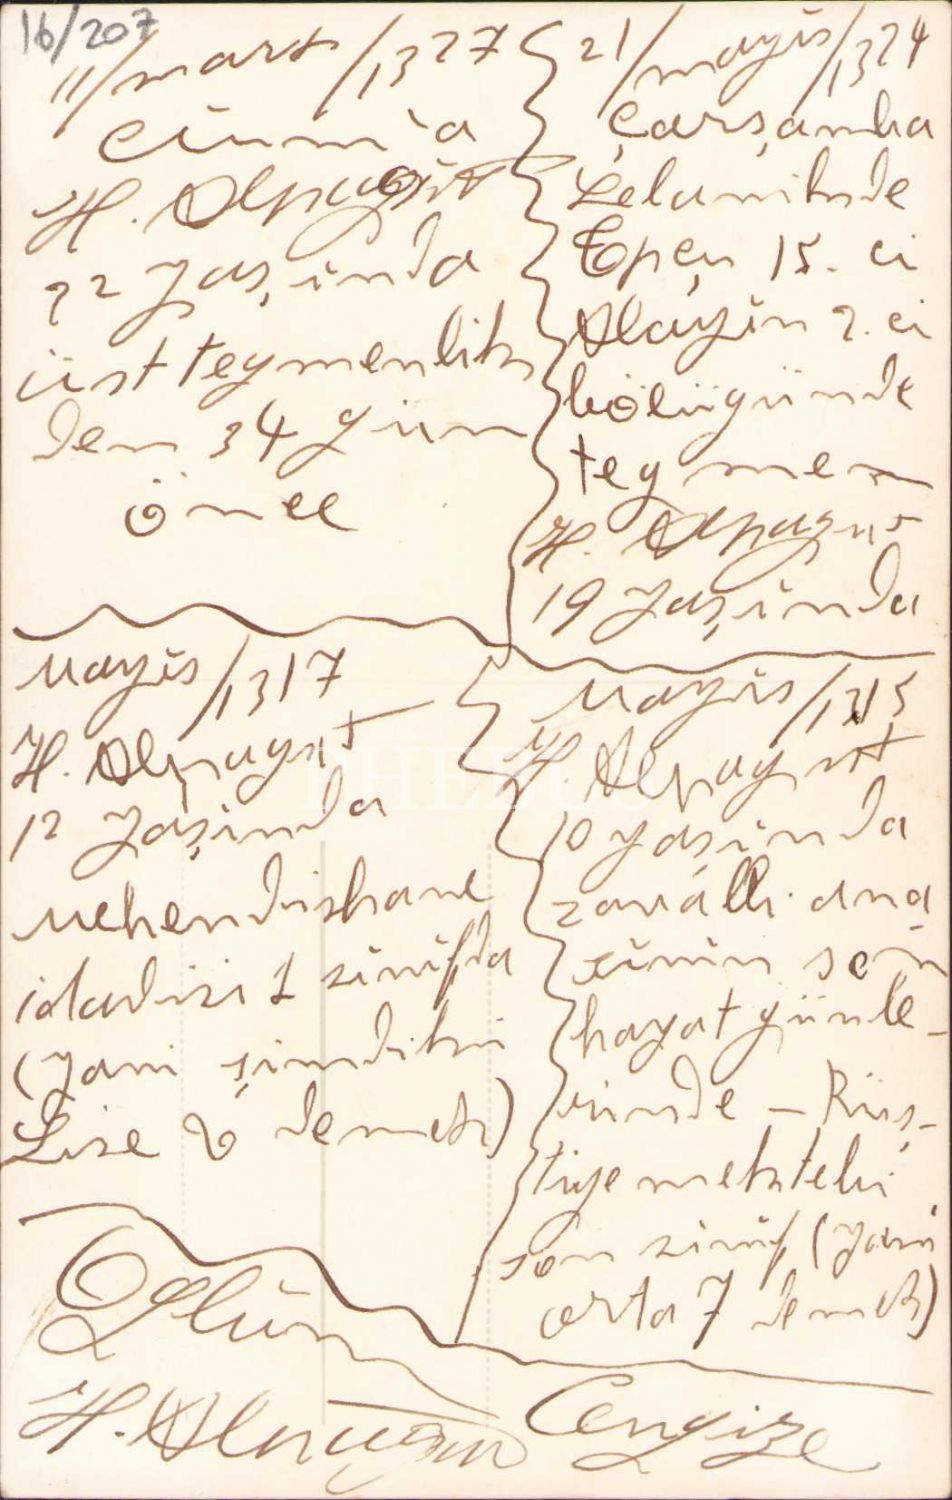 16/207
11/mart/1327
Cüm'a
H. Alpagut
22 yaşında
üst teymenlik
den 34 gün
önce
21/mayis/1324
Çarşamba
Selanikde
15. ci
Alayın 2. ci
bölüğünde
teymen
H. Alpagut
19 yaşında
Mayis/1317
H. Alpagut
12 yaşında
Mehendishane
idadisi 1 sinifda
(yani şimdiki
Lise demek)
Mayis/1315
H. Alpagut
10 yaşında
zavallı ana
sının son
hayat günle-
rinde – Rüş-
tiye mektebi
son sinif (yani
orta 7 demek)
Oğlum
Cengize
H. Alpagut
PHEBUS